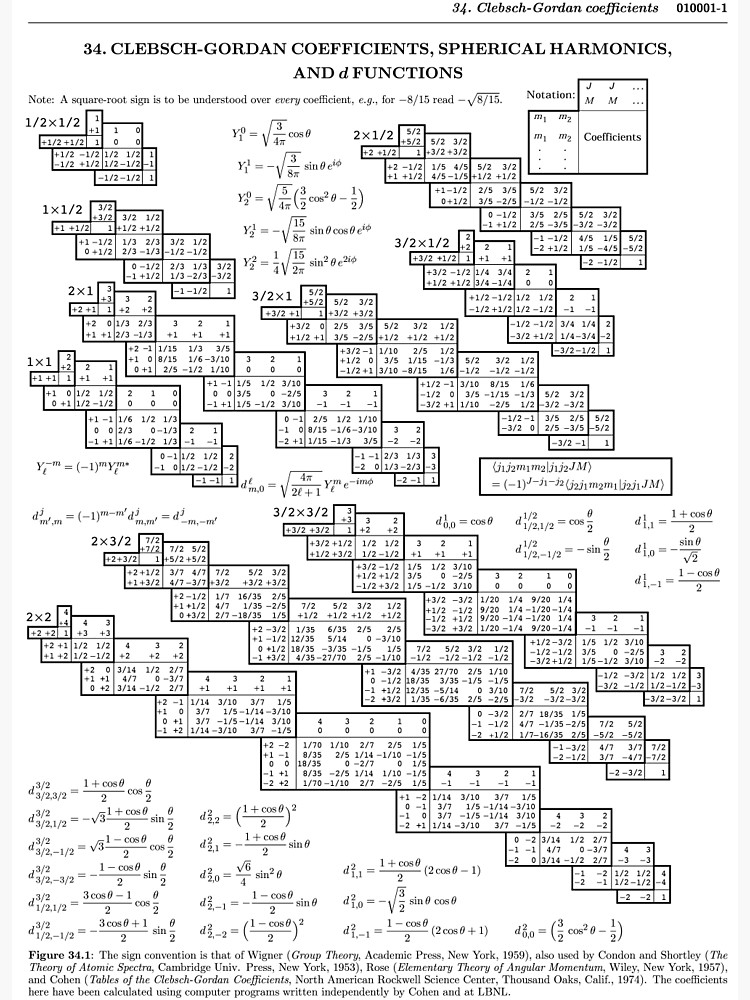 34. Clebsch-Gordan coefficients 010001-1
34. CLEBSCH-GORDAN COEFFICIENTS, SPHERICAL HARMONICS,
AND d FUNCTIONS
Note: A square-root sign is to be understood over every coefficient, e.g., for −8/15 read −√8/15.
Notation:
J J ...
M M ...
m1 m2
m1 m2 Coefficients
. .
. .
. .
1/2×1/2
1
+1 1 0
+1/2 +1/2 1 0 0
+1/2 −1/2 1/2 1/2 1
−1/2 +1/2 1/2 −1/2 −1
−1/2 −1/2 1
Y₁⁰ = √(3/4π) cos θ
Y₁¹ = −√(3/8π) sin θ e^{iϕ}
Y₂⁰ = √(5/4π) (3/2 cos² θ − 1/2)
Y₂¹ = −√(15/8π) sin θ cos θ e^{iϕ}
Y₂² = 1/4 √(15/2π) sin² θ e^{2iϕ}
2×1/2
5/2
+5/2 5/2 3/2
+2 +1/2 1 +3/2 +3/2
+2 −1/2 1/5 4/5 5/2 3/2
+1 +1/2 4/5 −1/5 +1/2 +1/2
+1 −1/2 2/5 3/5 5/2 3/2
0 +1/2 3/5 −2/5 −1/2 −1/2
0 −1/2 3/5 2/5 5/2 3/2
−1 +1/2 2/5 −3/5 −3/2 −3/2
−1 −1/2 4/5 1/5 5/2
−2 +1/2 1/5 −4/5 −5/2
−2 −1/2 1
1×1/2
3/2
+3/2 3/2 1/2
+1 +1/2 1 +1/2 +1/2
+1 −1/2 1/3 2/3 3/2 1/2
0 +1/2 2/3 −1/3 −1/2 −1/2
0 −1/2 2/3 1/3 3/2
−1 +1/2 1/3 −2/3 −3/2
−1 −1/2 1
3/2×1/2
2
+2 2 1
+3/2 +1/2 1 +1 +1
+3/2 −1/2 1/4 3/4 2 1
+1/2 +1/2 3/4 −1/4 0 0
+1/2 −1/2 1/2 1/2 2 1
−1/2 +1/2 1/2 −1/2 −1 −1
−1/2 −1/2 3/4 1/4 2
−3/2 +1/2 1/4 −3/4 −2
−3/2 −1/2 1
2×1
3
+3 3 2
+2 +1 1 +2 +2
+2 0 1/3 2/3 3 2 1
+1 +1 2/3 −1/3 +1 +1 +1
+2 −1 1/15 1/3 3/5
+1 0 8/15 1/6 −3/10
0 +1 2/5 −1/2 1/10
3 2 1
0 0 0
+1 −1 1/5 1/2 3/10
0 0 3/5 0 −2/5
−1 +1 1/5 −1/2 3/10
3 2 1
−1 −1 −1
0 −1 2/5 1/2 1/10
−1 0 8/15 −1/6 −3/10
−2 +1 1/15 −1/3 3/5
3 2
−2 −2
−1 −1 2/3 1/3 3
−2 0 1/3 −2/3 −3
−2 −1 1
3/2×1
5/2
+5/2 5/2 3/2
+3/2 +1 1 +3/2 +3/2
+3/2 0 2/5 3/5 5/2 3/2 1/2
+1/2 +1 3/5 −2/5 +1/2 +1/2 +1/2
+3/2 −1 1/10 2/5 1/2
+1/2 0 3/5 1/15 −1/3
−1/2 +1 3/10 −8/15 1/6
5/2 3/2 1/2
−1/2 −1/2 −1/2
+1/2 −1 3/10 8/15 1/6
−1/2 0 3/5 −1/15 −1/3
−3/2 +1 1/10 −2/5 1/2
5/2 3/2
−3/2 −3/2
−1/2 −1 3/5 2/5 5/2
−3/2 0 2/5 −3/5 −5/2
−3/2 −1 1
1×1
2
+2 2 1
+1 +1 1 +1 +1
+1 0 1/2 1/2 2 1 0
0 +1 1/2 −1/2 0 0 0
+1 −1 1/6 1/2 1/3
0 0 2/3 0 −1/3
−1 +1 1/6 −1/2 1/3
2 1
−1 −1
0 −1 1/2 1/2 2
−1 0 1/2 −1/2 −2
−1 −1 1
Y_ℓ^{−m} = (−1)^m Y_ℓ^{m*}
d^ℓ_{m,0} = √(4π/(2ℓ+1)) Y_ℓ^m e^{−imϕ}
⟨j1j2m1m2|j1j2JM⟩
= (−1)^{J−j1−j2}⟨j2j1m2m1|j2j1JM⟩
d^j_{m′,m} = (−1)^{m−m′} d^j_{m,m′} = d^j_{−m,−m′}
d^1_{0,0} = cos θ
d^{1/2}_{1/2,1/2} = cos θ/2
d^{1/2}_{1/2,−1/2} = − sin θ/2
d^1_{1,1} = (1 + cos θ)/2
d^1_{1,0} = − sin θ/√2
d^1_{1,−1} = (1 − cos θ)/2
3/2×3/2
3
+3 3 2
+3/2 +3/2 1 +2 +2
+3/2 +1/2 1/2 1/2 3 2 1
+1/2 +3/2 1/2 −1/2 +1 +1 +1
+3/2 −1/2 1/5 1/2 3/10
+1/2 +1/2 3/5 0 −2/5
−1/2 +3/2 1/5 −1/2 3/10
3 2 1 0
0 0 0 0
+3/2 −3/2 1/20 1/4 9/20 1/4
+1/2 −1/2 9/20 1/4 −1/20 −1/4
−1/2 +1/2 9/20 −1/4 −1/20 1/4
−3/2 +3/2 1/20 −1/4 9/20 −1/4
3 2 1
−1 −1 −1
+1/2 −3/2 1/5 1/2 3/10
−1/2 −1/2 3/5 0 −2/5
−3/2 +1/2 1/5 −1/2 3/10
3 2
−2 −2
−1/2 −3/2 1/2 1/2 3
−3/2 −1/2 1/2 −1/2 −3
−3/2 −3/2 1
2×3/2
7/2
+7/2 7/2 5/2
+2 +3/2 1 +5/2 +5/2
+2 +1/2 3/7 4/7 7/2 5/2 3/2
+1 +3/2 4/7 −3/7 +3/2 +3/2 +3/2
+2 −1/2 1/7 16/35 2/5
+1 +1/2 4/7 1/35 −2/5
0 +3/2 2/7 −18/35 1/5
7/2 5/2 3/2 1/2
+1/2 +1/2 +1/2 +1/2
+2 −3/2 1/35 6/35 2/5 2/5
+1 −1/2 12/35 5/14 0 −3/10
0 +1/2 18/35 −3/35 −1/5 1/5
−1 +3/2 4/35 −27/70 2/5 −1/10
7/2 5/2 3/2 1/2
−1/2 −1/2 −1/2 −1/2
+1 −3/2 4/35 27/70 2/5 1/10
0 −1/2 18/35 3/35 −1/5 −1/5
−1 +1/2 12/35 −5/14 0 3/10
−2 +3/2 1/35 −6/35 2/5 −2/5
7/2 5/2 3/2
−3/2 −3/2 −3/2
0 −3/2 2/7 18/35 1/5
−1 −1/2 4/7 −1/35 −2/5
−2 +1/2 1/7 −16/35 2/5
7/2 5/2
−5/2 −5/2
−1 −3/2 4/7 3/7 7/2
−2 −1/2 3/7 −4/7 −7/2
−2 −3/2 1
2×2
4
+4 4 3
+2 +2 1 +3 +3
+2 +1 1/2 1/2 4 3 2
+1 +2 1/2 −1/2 +2 +2 +2
+2 0 3/14 1/2 2/7
+1 +1 4/7 0 −3/7
0 +2 3/14 −1/2 2/7
4 3 2 1
+1 +1 +1 +1
+2 −1 1/14 3/10 3/7 1/5
+1 0 3/7 1/5 −1/14 −3/10
0 +1 3/7 −1/5 −1/14 3/10
−1 +2 1/14 −3/10 3/7 −1/5
4 3 2 1 0
0 0 0 0 0
+2 −2 1/70 1/10 2/7 2/5 1/5
+1 −1 8/35 2/5 1/14 −1/10 −1/5
0 0 18/35 0 −2/7 0 1/5
−1 +1 8/35 −2/5 1/14 1/10 −1/5
−2 +2 1/70 −1/10 2/7 −2/5 1/5
4 3 2 1
−1 −1 −1 −1
+1 −2 1/14 3/10 3/7 1/5
0 −1 3/7 1/5 −1/14 −3/10
−1 0 3/7 −1/5 −1/14 3/10
−2 +1 1/14 −3/10 3/7 −1/5
4 3 2
−2 −2 −2
0 −2 3/14 1/2 2/7
−1 −1 4/7 0 −3/7
−2 0 3/14 −1/2 2/7
4 3
−3 −3
−1 −2 1/2 1/2 4
−2 −1 1/2 −1/2 −4
−2 −2 1
d^{3/2}_{3/2,3/2} = (1 + cos θ)/2 cos θ/2
d^{3/2}_{3/2,1/2} = −√3 (1 + cos θ)/2 sin θ/2
d^{3/2}_{3/2,−1/2} = √3 (1 − cos θ)/2 cos θ/2
d^{3/2}_{3/2,−3/2} = −(1 − cos θ)/2 sin θ/2
d^{3/2}_{1/2,1/2} = (3 cos θ − 1)/2 cos θ/2
d^{3/2}_{1/2,−1/2} = −(3 cos θ + 1)/2 sin θ/2
d^2_{2,2} = ((1 + cos θ)/2)²
d^2_{2,1} = −(1 + cos θ)/2 sin θ
d^2_{2,0} = √6/4 sin² θ
d^2_{2,−1} = −(1 − cos θ)/2 sin θ
d^2_{2,−2} = ((1 − cos θ)/2)²
d^2_{1,1} = (1 + cos θ)/2 (2 cos θ − 1)
d^2_{1,0} = −√(3/2) sin θ cos θ
d^2_{1,−1} = (1 − cos θ)/2 (2 cos θ + 1)
d^2_{0,0} = (3/2 cos² θ − 1/2)
Figure 34.1: The sign convention is that of Wigner (Group Theory, Academic Press, New York, 1959), also used by Condon and Shortley (The
Theory of Atomic Spectra, Cambridge Univ. Press, New York, 1953), Rose (Elementary Theory of Angular Momentum, Wiley, New York, 1957),
and Cohen (Tables of the Clebsch-Gordan Coefficients, North American Rockwell Science Center, Thousand Oaks, Calif., 1974). The coefficients
here have been calculated using computer programs written independently by Cohen and at LBNL.